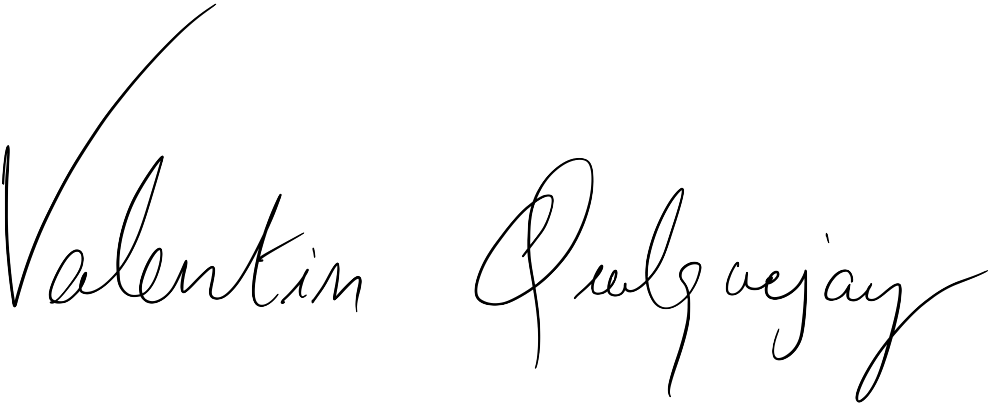 Valentin Quelquejay